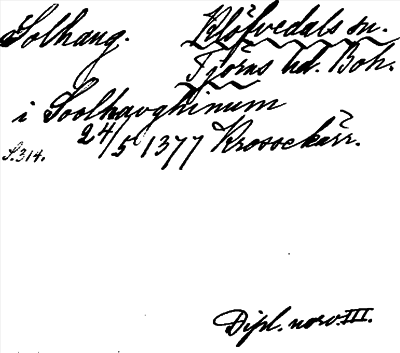 Solhaug. Klöfvedals sn.
Tjörns hd. Boh.
i Soolhaughinum
S. 314. 24/5 1377 Krossekärr.
Dipl. norv. III.